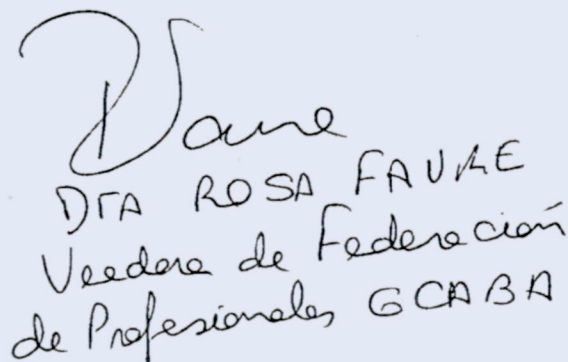 DRA ROSA FAURE
Veedora de Federación
de Profesionales GCABA